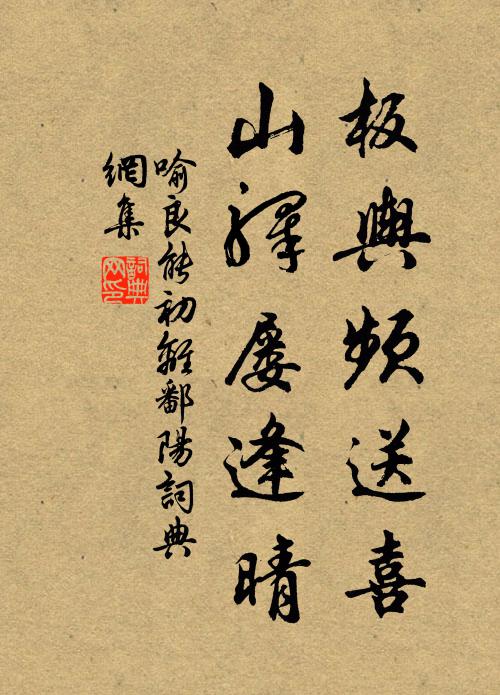 板輿頻送喜
山驛屢逢晴
喻良能初離鄱陽詞典
網集
詞典
網印